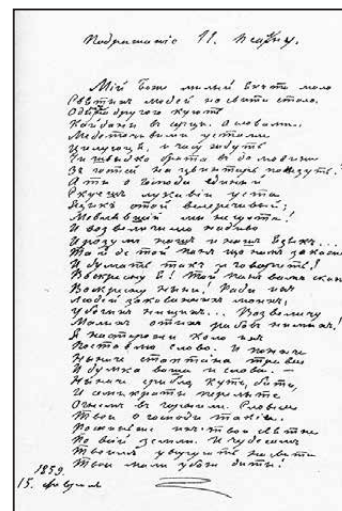 Подражаніє 11. Псалму.
Мій Боже милый, якъ то мало
Святихъ людей на світі стало.
Одинъ на другого кують
Кайданы въ серці. А словами,
Медоточивими устами
Цилуютця, и часу ждуть,
Чи швыдко брата въ домовині
Зъ гостей на цвинтаръ понесуть?
А ты о Господи єдиный
Скуєшъ лукавіи уста
Языкъ отой велеречивый,
Мовлявшій: мы не суєта!
И возвеличимо на диво
И розумъ нашъ и нашъ языкъ...
Та й де той панъ що намъ закаже
И думать такъ и говорить?
Воскресну я! Той панъ вамъ скаже
Воскресну ныні! Ради ихъ
Людей закованихъ моихъ,
Убогихъ нищихъ... Возвеличу
Малихъ отихъ рабовъ німихъ!
Я на сторожи коло ихъ
Поставлю слово. И пониче
Неначе стоптана трава
И думка ваша и слова. —
Неначе срибло куте, бите,
И семикраты перелите
Огнемъ въ горнилі. Словеса
Твои о Господи такіи.
Розкинь же ихъ твои святыє
По всій земли. И чудесамъ
Твоимъ увируютъ на світи
Твои мали убоги діти!
1859.
15. февраля